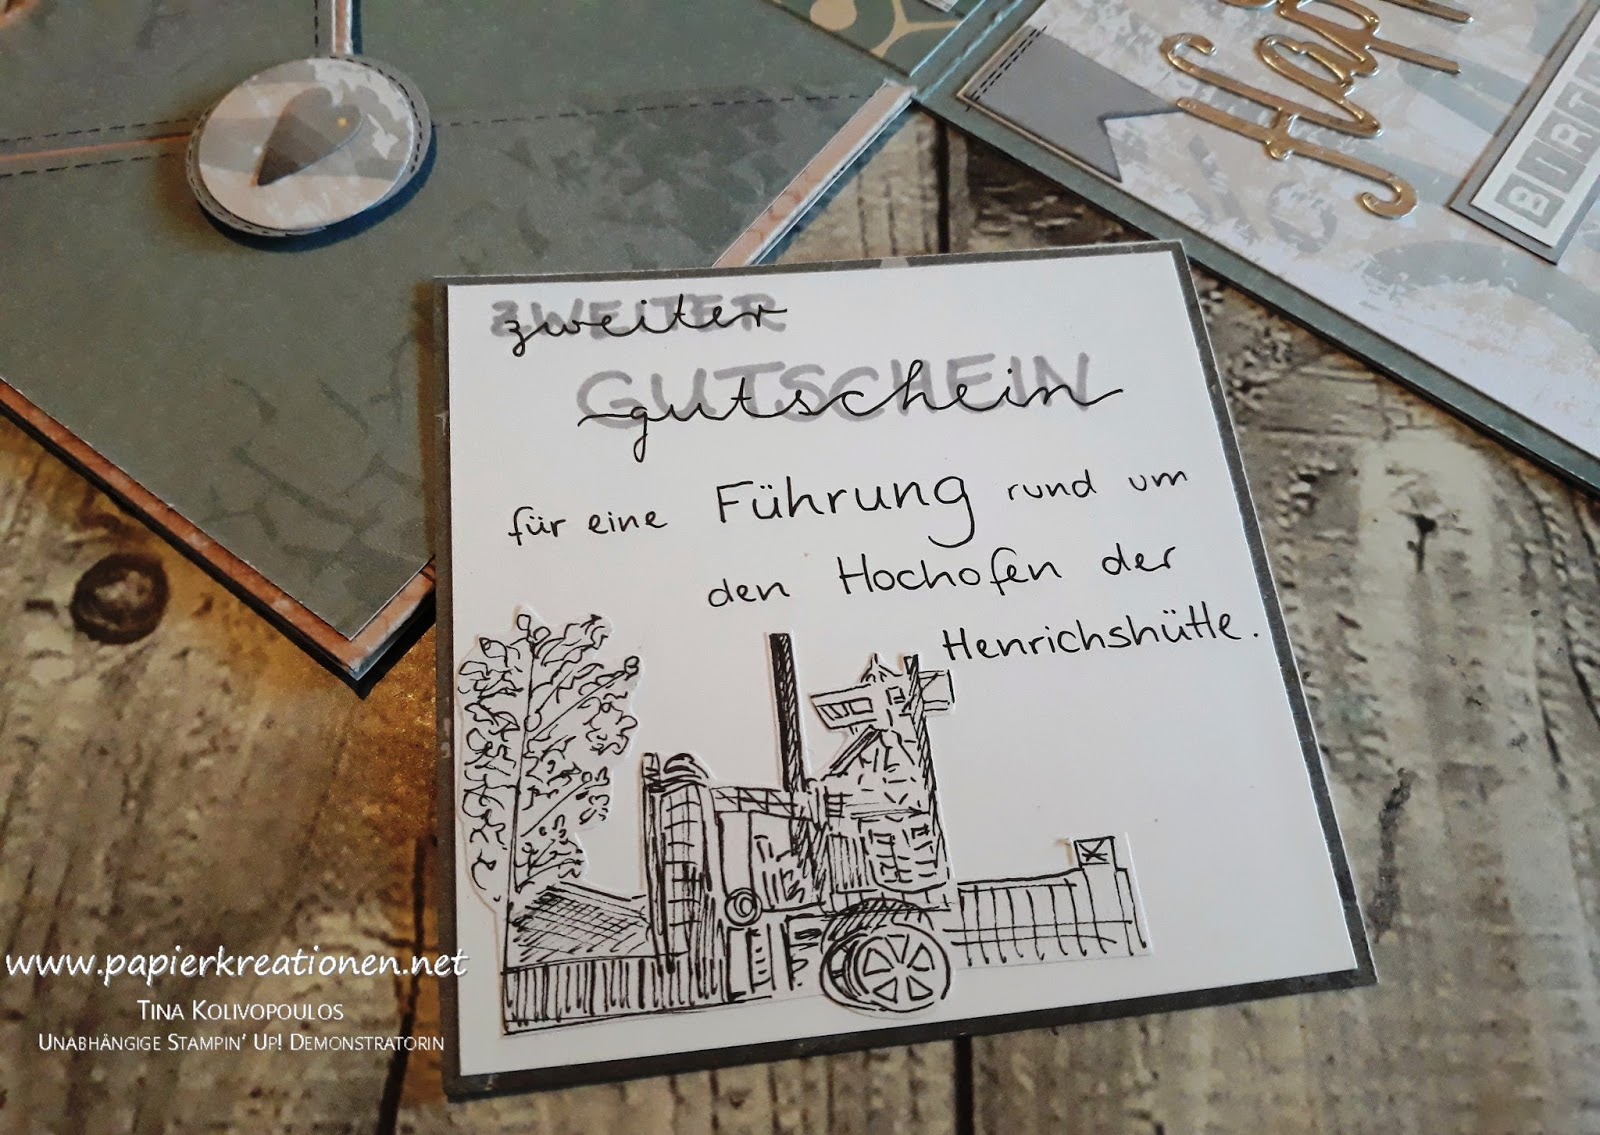 Hap
BIRT
ZWEITER
zweiter
GUTSCHEIN
gutschein
für eine Führung rund um
den Hochofen der
Henrichshütte.
www.papierkreationen.net
Tina Kolivopoulos
Unabhängige Stampin' Up! Demonstratorin